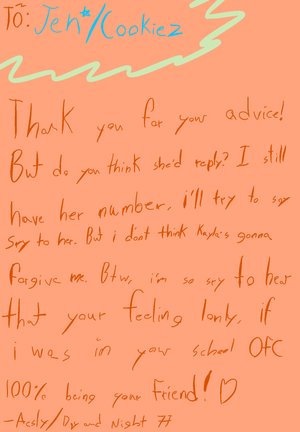 TO: Jen*/Cookiez
Thank you for your advice!
But do you think she'd reply? I still
have her number, i'll try to say
sry to her. But i don't think Kayla's gonna
forgive me. Btw, i'm so sry to hear
that your feeling lonly, if
i was in your school OfC
100% being your friend! ♡
-Acsly/Day and Night 77